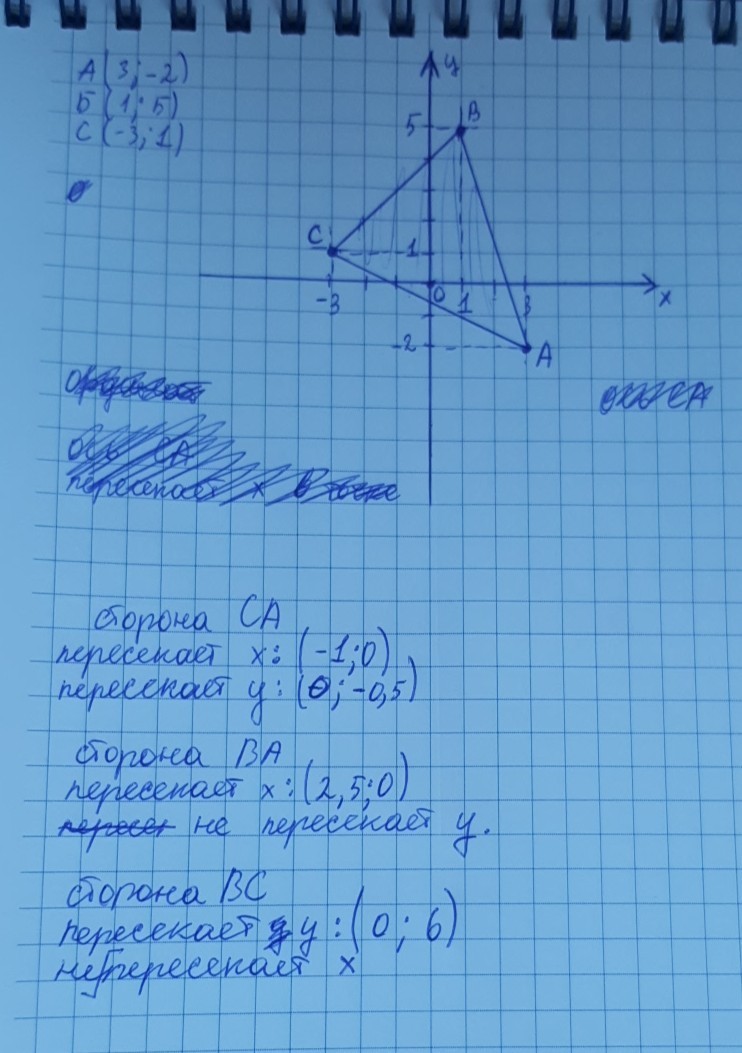 А(3;-2)
Б(1;5)
С(-3;1)
y
5
B
C
1
-3
0
1
3
x
-2
A
ось СА
пересекает x в точке
сторона СА
пересекает x: (-1;0)
пересекает y: (0;-0,5)
сторона ВА
пересекает x: (2,5;0)
пересет не пересекает y.
сторона ВС
пересекает y: (0; 6)
не пересекает x